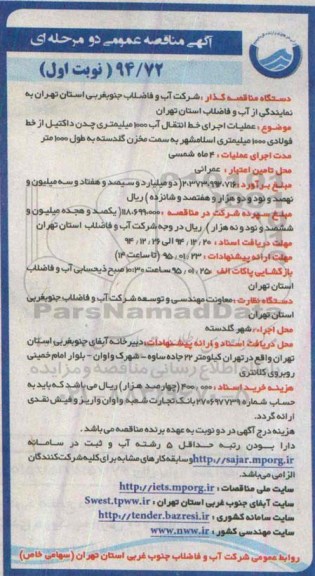 آگهی مناقصه عمومی دو مرحله ای
۹۴/۷۲ ( نوبت اول )
دستگاه مناقصه گذار : شرکت آب و فاضلاب جنوبغربی استان تهران به
نمایندگی از آب و فاضلاب استان تهران
موضوع : عملیات اجرای خط انتقال آب ۱۰۰۰ میلیمتری چدن داکتیل از خط
فولادی ۱۰۰۰ میلیمتری اسلامشهر به سمت مخزن گلدسته به طول ۱۰۰۰ متر
مدت اجرای عملیات : ۴ ماه شمسی
محل تامین اعتبار : عمرانی
مبلغ برآورد : ۲،۳۷۳،۹۹۲،۷۱۶ ( دو میلیارد و سیصد و هفتاد و سه میلیون و
نهصد و نود و دو هزار و هفتصد و شانزده ) ریال
مبلغ سپرده شرکت در مناقصه : ۱۱۸،۶۹۹،۰۰۰ ( یکصد و هجده میلیون و
ششصد و نود و نه هزار ) ریال در وجه شرکت آب و فاضلاب استان تهران
مهلت دریافت اسناد : ۲۰ / ۱۲ / ۹۴ الی ۲۶ / ۱۲ / ۹۴
مهلت ارائه پیشنهادات : ۲۳ / ۰۱ / ۹۵ ( تا ساعت ۱۴ )
بازگشایی پاکات الف : ۲۵ / ۰۱ / ۹۵ ساعت ۱۰:۳۰ صبح ذیحسابی آب و فاضلاب
استان تهران
دستگاه نظارت : معاونت مهندسی و توسعه شرکت آب و فاضلاب جنوبغربی
استان تهران
محل اجراء : شهر گلدسته
محل دریافت اسناد و ارائه پیشنهادات : دبیرخانه آبفای جنوبغربی استان
تهران واقع در تهران کیلومتر ۲۲ جاده ساوه - شهرک واوان - بلوار امام خمینی
روبروی کلانتری
هزینه خرید اسناد : ۴۰۰،۰۰۰ (چهارصد هزار) ریال می باشد که باید به
حساب شماره ۲۷۶۹۲۷۷۳۹ بانک تجارت شعبه واوان واریز و فیش نقدی
ارائه گردد.
هزینه درج آگهی در دو نوبت به عهده برنده مناقصه می باشد.
دارا بودن رتبه حداقل ۵ رشته آب و ثبت در سامانه
http://sajar.mporg.ir و سابقه کارهای مشابه برای کلیه شرکت کنندگان
الزامی می باشد.
سایت ملی مناقصات : http://iets.mporg.ir
سایت آبفای جنوب غربی استان تهران : Swest.tpww.ir
سایت سامانه کشوری : http://tender.bazresi.ir
سایت مهندسی کشور : www.nww.ir
روابط عمومی شرکت آب و فاضلاب جنوب غربی استان تهران (سهامی خاص)